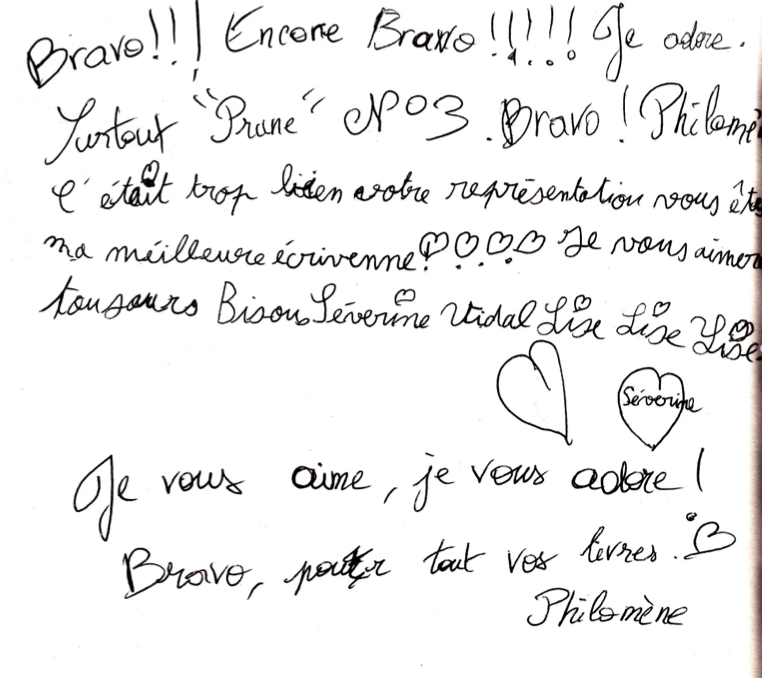 Bravo!!! Encore Bravo !!!!! Je adore.
Surtout "Prune" N°03. Bravo! Philomè
C'était trop bien votre représentation vous ête
ma méilleure écrivenne! Je vous aimer
tousours Bisous Séverine Vidal Lise Lise Lise
Séverine
Je vous aime, je vous adore!
Bravo, pour tout vos livres.
Philomène